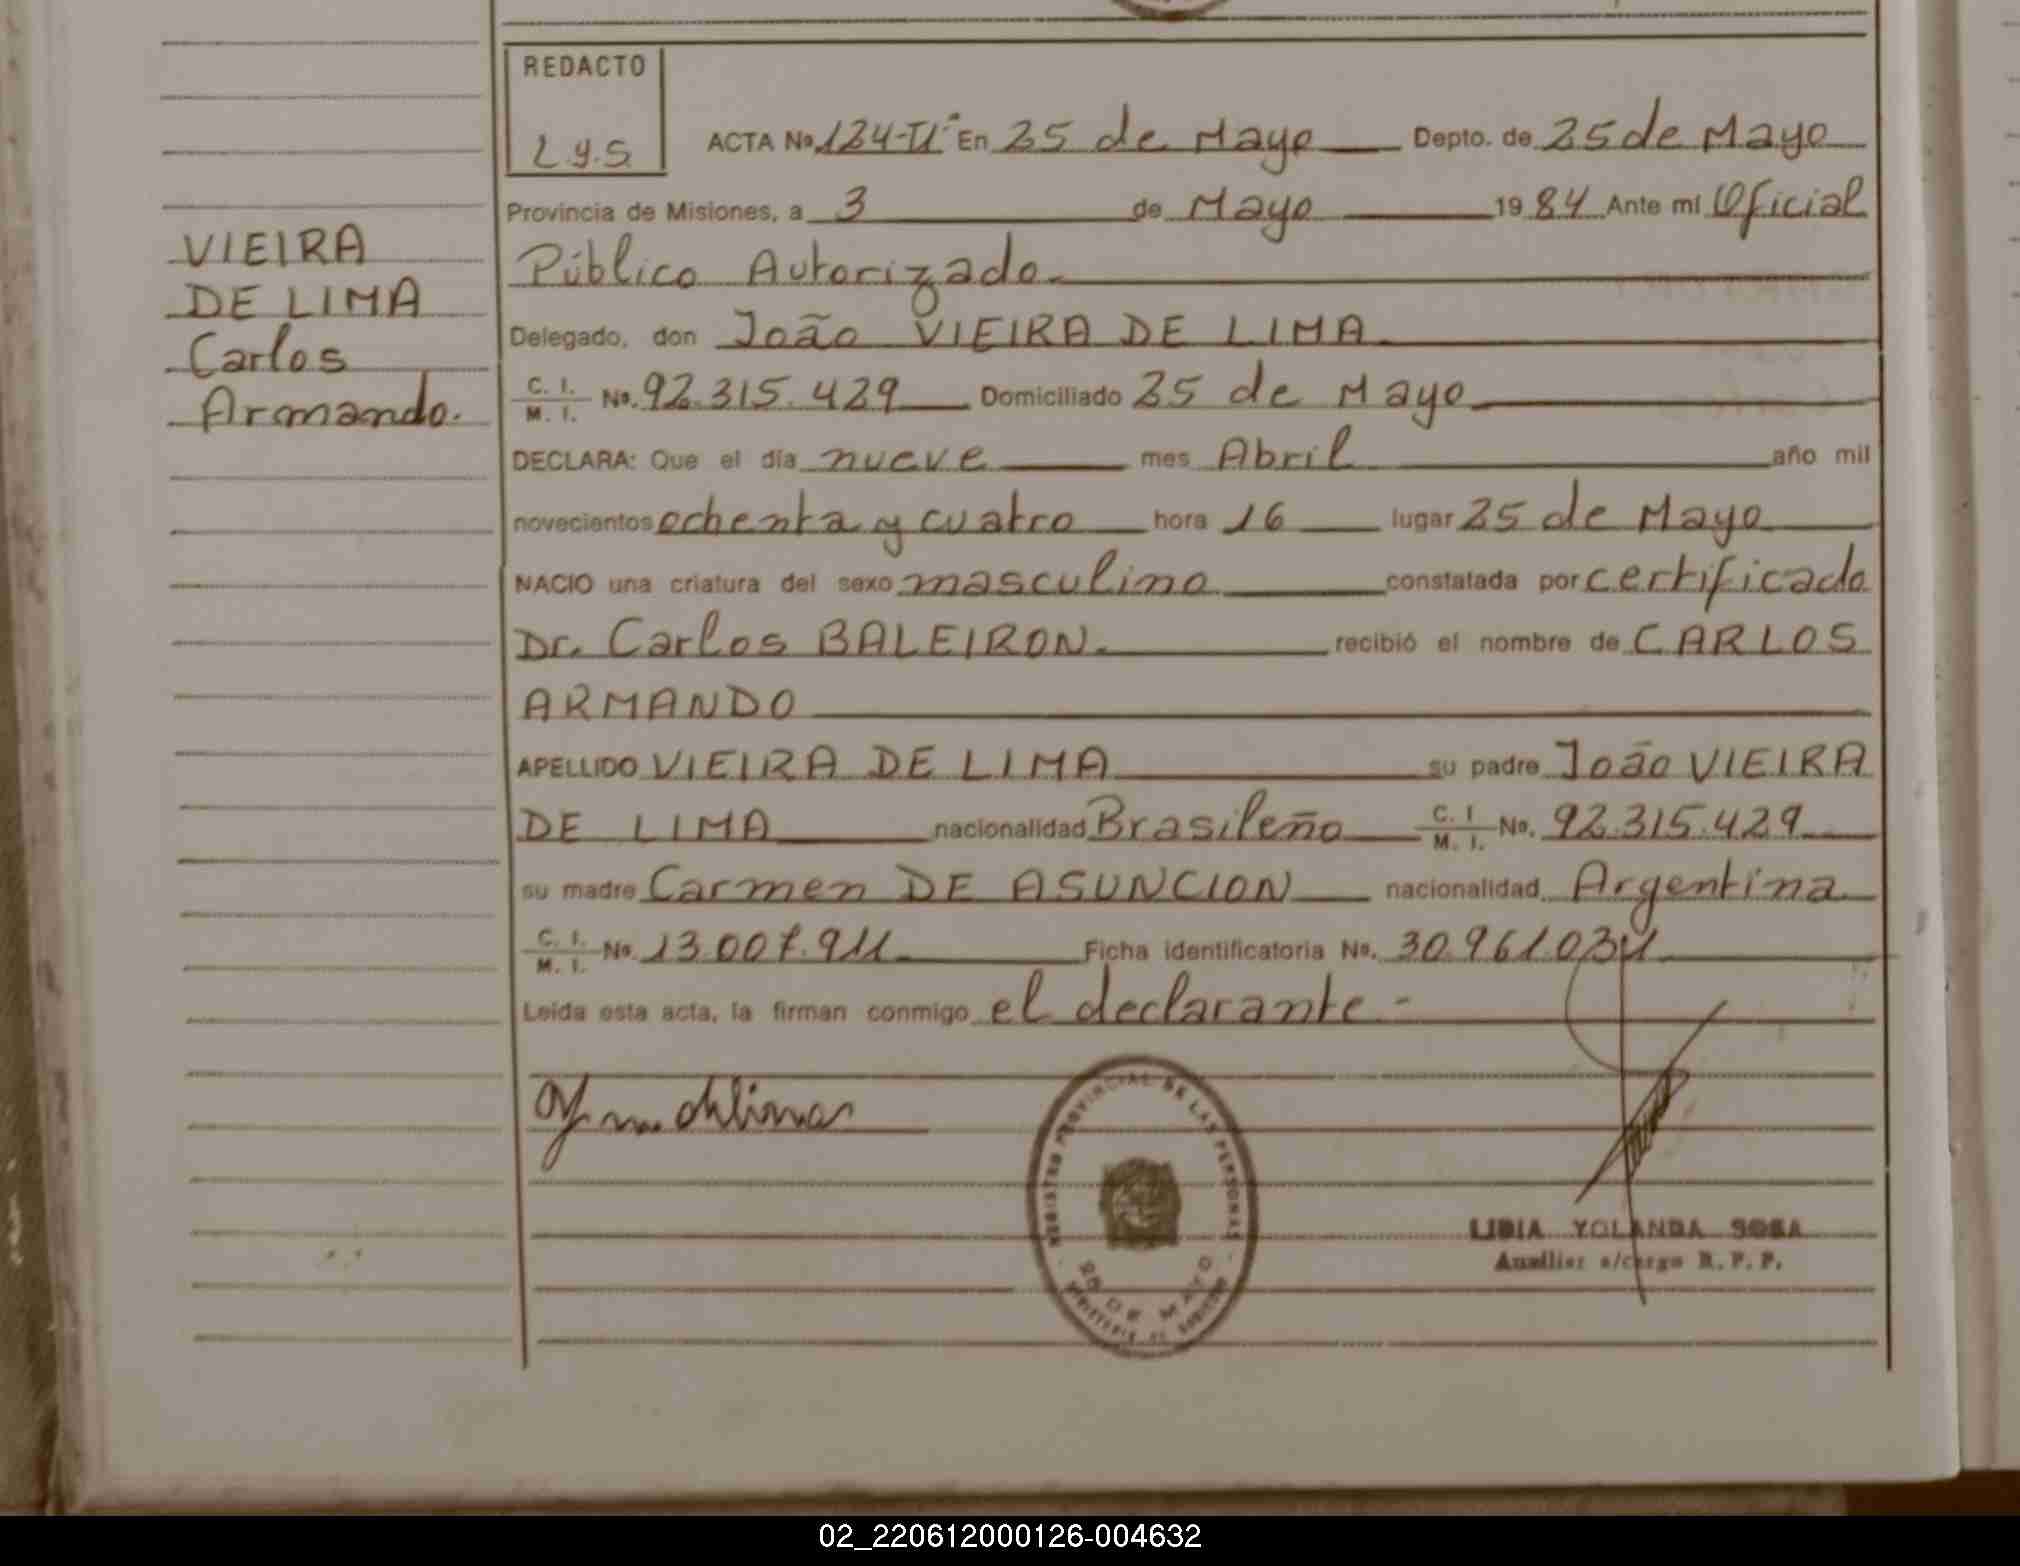 REDACTO
L.y.S
ACTA No. 124-TI° En 25 de Mayo Depto. de 25 de Mayo
Provincia de Misiones, a 3 de Mayo 1984 Ante mi Oficial
Público Autorizado.
Delegado, don João VIEIRA DE LIMA
C. I. M. I. No. 92.315.429 Domiciliado 25 de Mayo
DECLARA: Que el día nueve mes Abril año mil
novecientos ochenta y cuatro hora 16 lugar 25 de Mayo
NACIO una criatura del sexo masculino constatada por certificado
Dr. Carlos BALEIRON. recibió el nombre de CARLOS
ARMANDO
APELLIDO VIEIRA DE LIMA su padre João VIEIRA
DE LIMA nacionalidad Brasileño C. I. M. I. No. 92.315.429
su madre Carmen DE ASUNCION nacionalidad Argentina
C. I. M. I. No. 13.007.911 Ficha identificatoria No. 30.961.034
Leída esta acta, la firman conmigo el declarante -
VIEIRA
DE LIMA
Carlos
Armando.
REGISTRO PROVINCIAL DE LAS PERSONAS
25 DE MAYO
MINISTERIO DE GOBIERNO
LIDIA YOLANDA SOSA
Auxiliar a/cargo R. P. P.
02_220612000126-004632